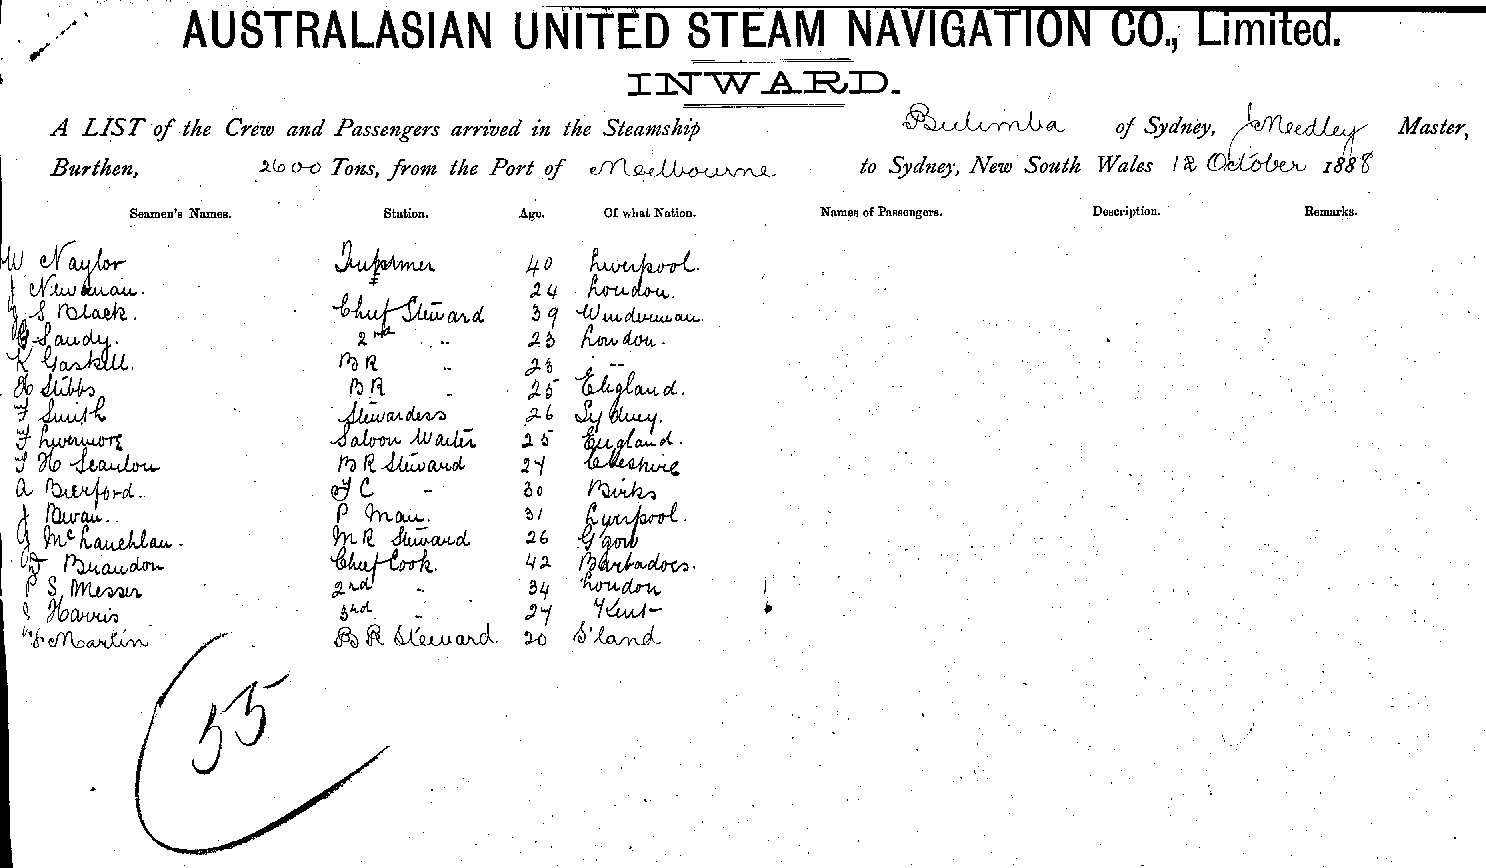 AUSTRALASIAN UNITED STEAM NAVIGATION CO., Limited.
INWARD.
A LIST of the Crew and Passengers arrived in the Steamship Bulimba of Sydney, J Medley Master,
Burthen, 2600 Tons, from the Port of Melbourne to Sydney, New South Wales 12 October 1888
Seamen's Names. Station. Age. Of what Nation. Names of Passengers. Description. Remarks.
W Naylor 40 Liverpool.
J Newman. 24 London.
S Black. Chief Steward 39
Sandy. 2nd " 23 London.
K Gaskell. BR " 23 "
H Stibbs BR " 25 England.
F Smith Stewardess 26 Sydney.
F Livermore Saloon Waiter 25 England.
T H Scanlon BR Steward 27 Cheshire
A Burford. FC " 30
J Bevan. P Man. 31 Liverpool.
J McLauchlan. MR Steward 26 G'gow
Brandon Chief Cook. 42 Barbadoes.
P S. Messer 2nd " 34 London
Harris 3rd " 27 Kent
W Martin BR Steward. 20 S'land
55